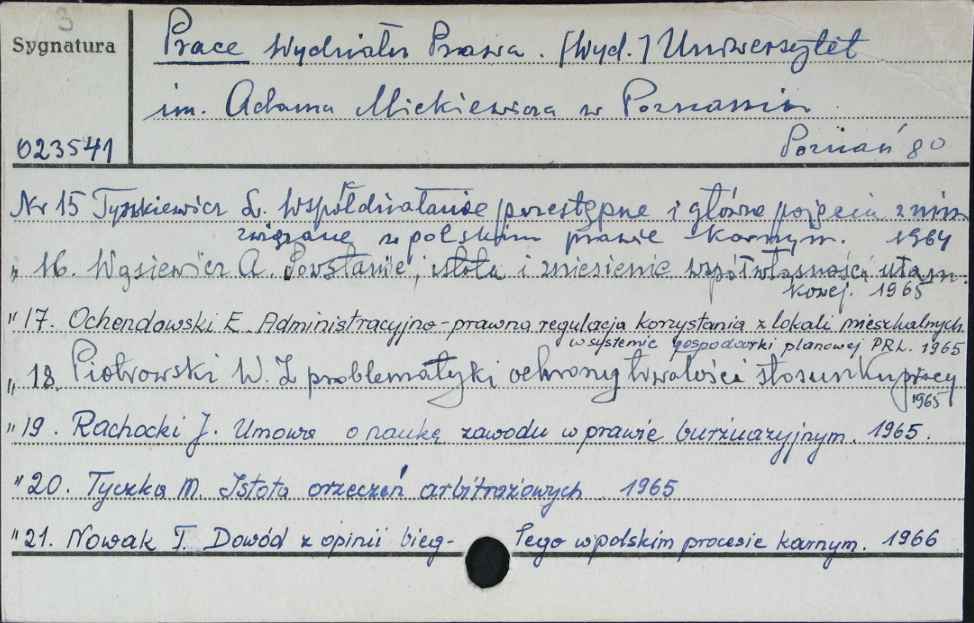 3
Sygnatura
Prace Wydziału Prawa. [Wyd.] Uniwersytet
im. Adama Mickiewicza w Poznaniu
023541
Poznań 80
Nr 15 Tyszkiewicz L. Współdziałanie przestępne i główne pojęcia z nim
związane w polskim prawie karnym. 1964
" 16. Wąsiewicz A. Powstanie, istota i zniesienie współwłasności ułam-
kowej. 1965
" 17. Ochendowski E. Administracyjno-prawna regulacja korzystania z lokali mieszkalnych
w systemie gospodarki planowej PRL. 1965
" 18. Piotrowski W. Z problematyki ochrony trwałości stosunku pracy
1965
" 19. Rachocki J. Umowa o naukę zawodu w prawie burżuazyjnym. 1965.
" 20. Tyczka M. Istota orzeczeń arbitrażowych. 1965
" 21. Nowak T. Dowód z opinii bieg- łego w polskim procesie karnym. 1966